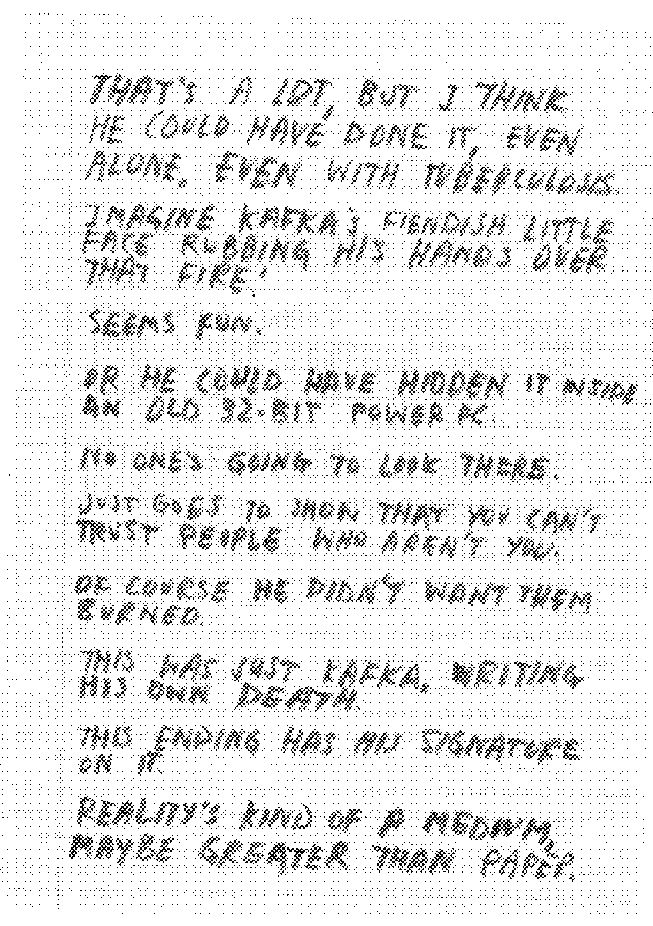 THAT'S A LOT, BUT I THINK
HE COULD HAVE DONE IT, EVEN
ALONE. EVEN WITH TUBERCULOUS.
IMAGINE KAFKA'S FIENDISH LITTLE
FACE RUBBING HIS HANDS OVER
THAT FIRE!
SEEMS FUN.
OR HE COULD HAVE HIDDEN IT INSIDE
AN OLD 32-BIT POWER PC.
NO ONE'S GOING TO LOOK THERE.
JUST GOES TO SHOW THAT YOU CAN'T
TRUST PEOPLE WHO AREN'T YOU.
OF COURSE HE DIDN'T WANT THEM
BURNED.
THIS WAS JUST KAFKA, WRITING
HIS OWN DEATH.
THIS ENDING HAS HIS SIGNATURE
ON IT.
REALITY'S KIND OF A MEDIUM,
MAYBE GREATER THAN PAPER.